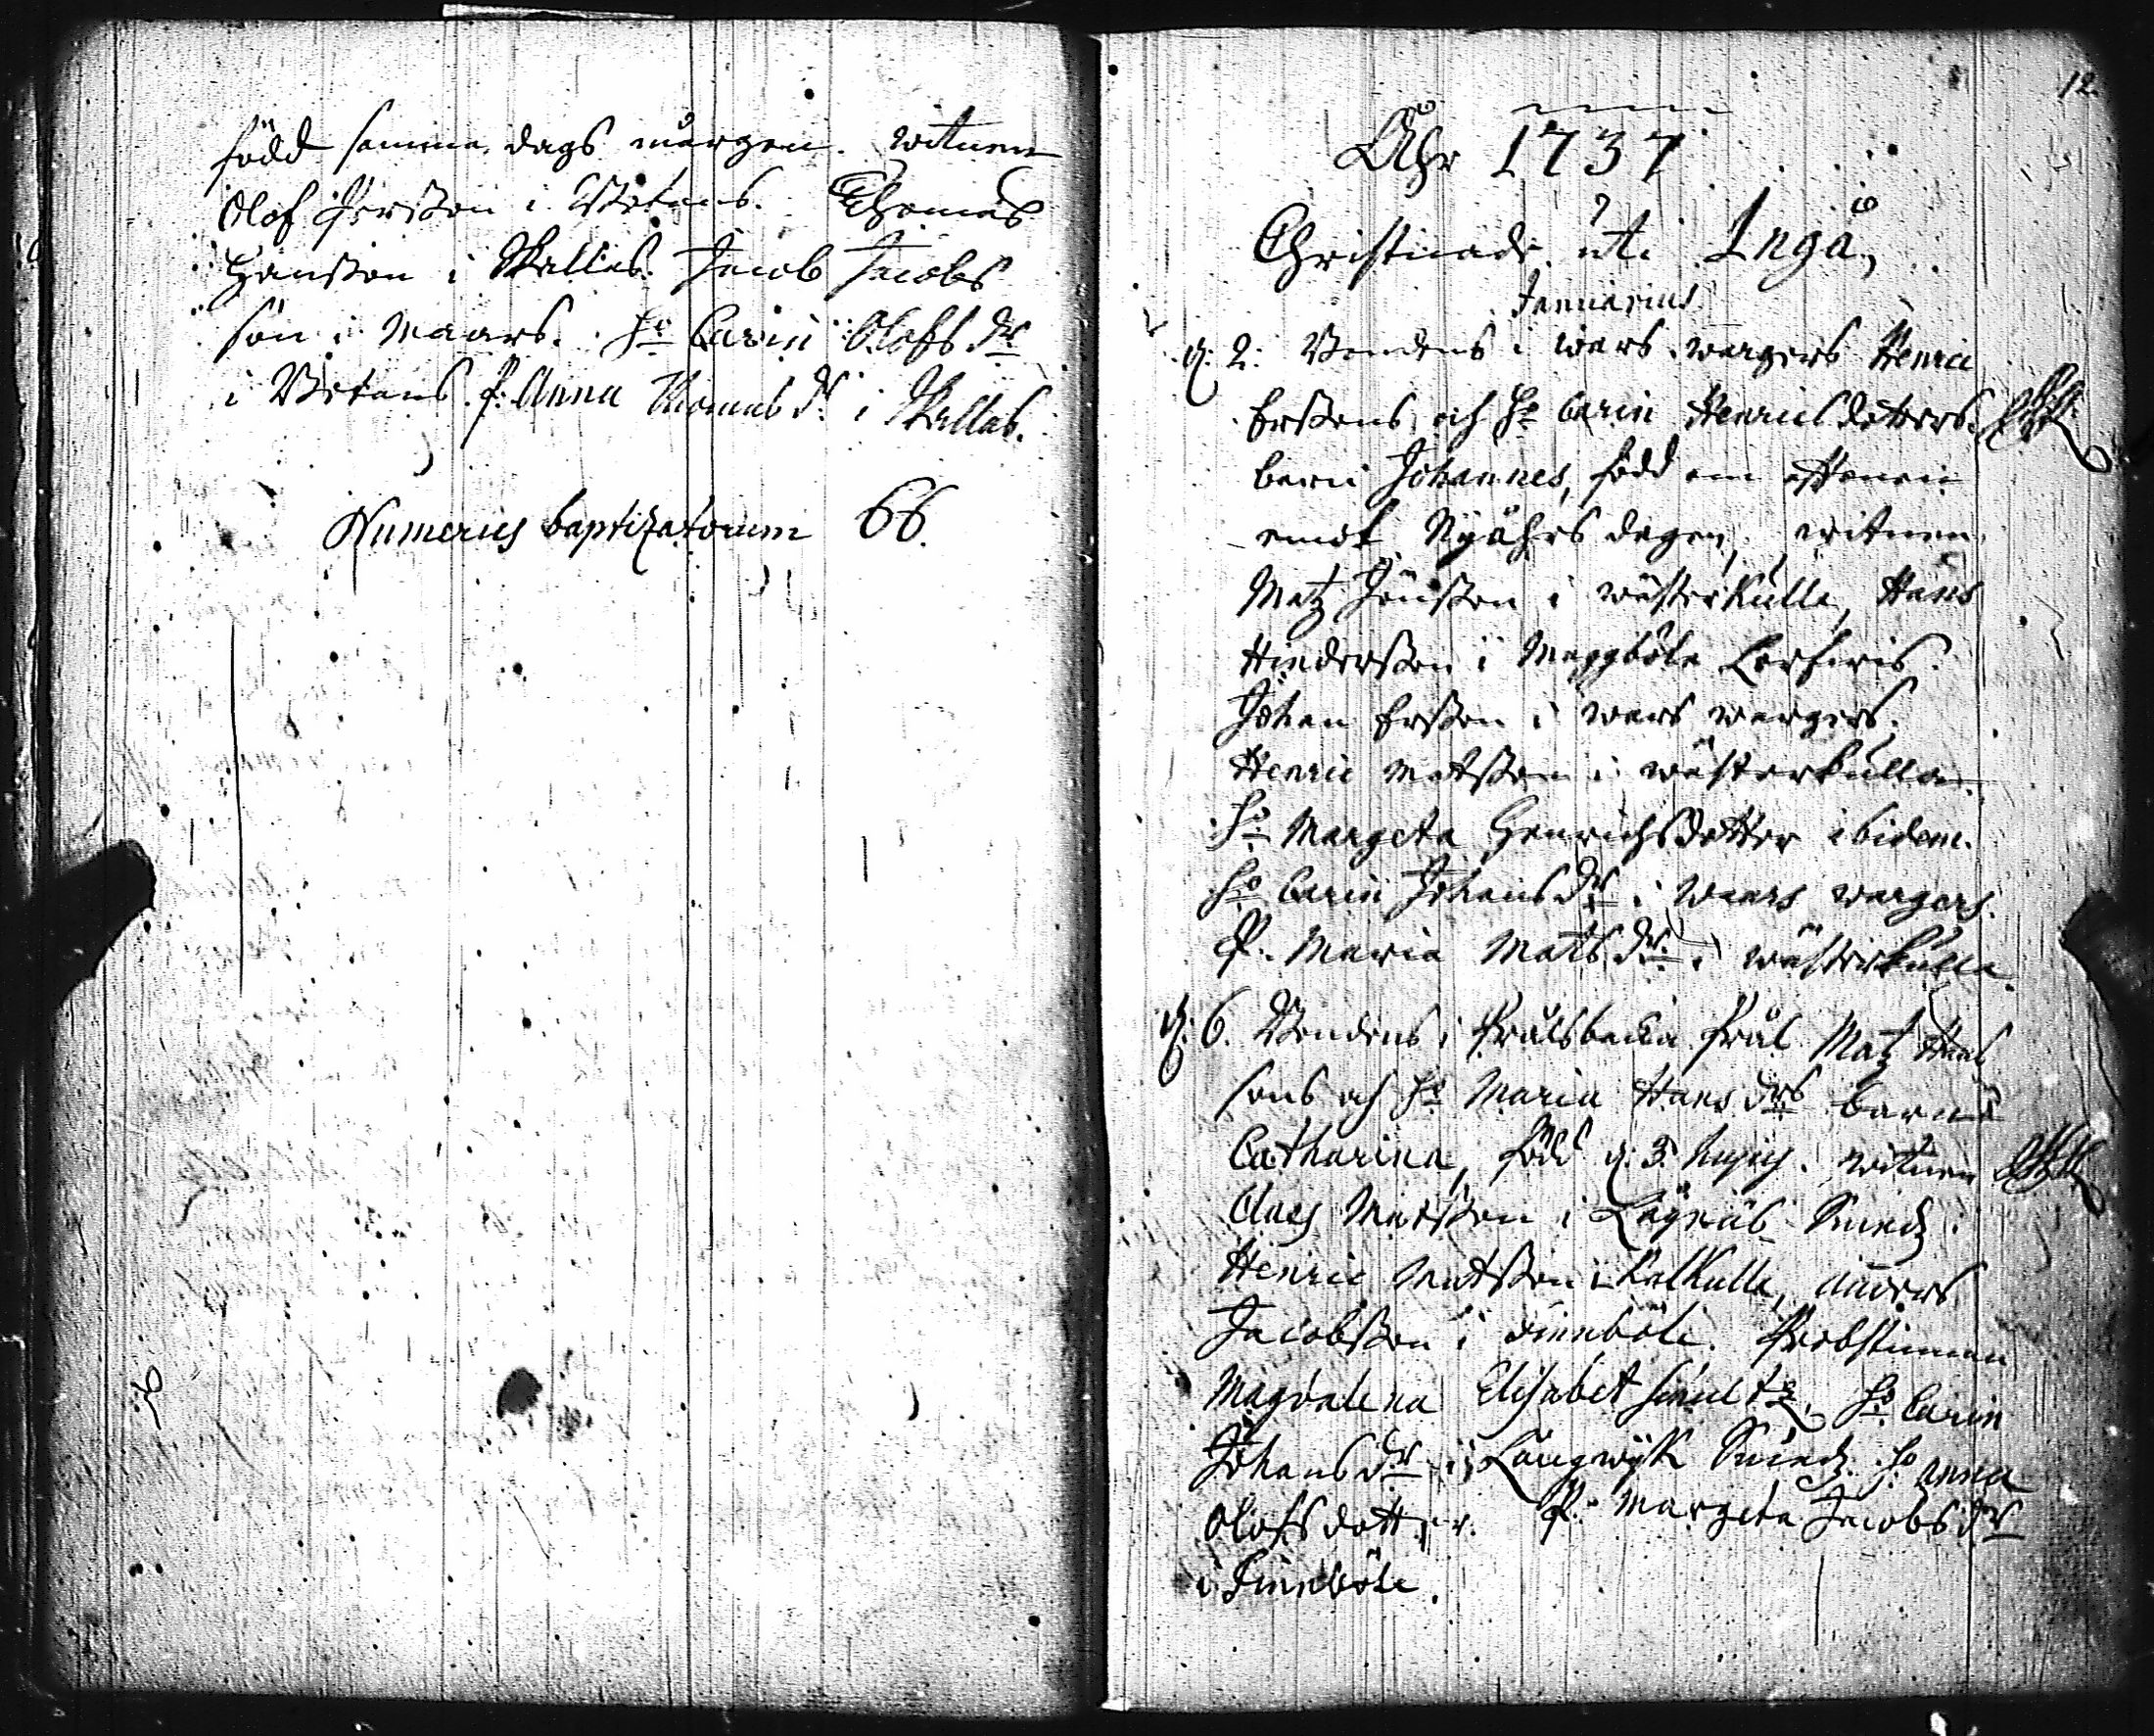 född samma dags mårgon. witnen
Olof Persson i Wetans. Thomas
Hansson i Skallas. Jacob Jacobs
son i Maars. H:o Carin Olofs dr
i Wetans. P: Anna Thomas dr i Skallas.
Numerus baptizatorum 66.
12.
Åhr 1737
Christnade uti Ingå,
Januarius
d. 2. Bondens i wars wargers Henric
Erssons och H:o Carin Henrics dotters
barn Johannes, född om afftonen
emot Nyåhrs dagen, witnen
Matz Jönsson i wästerkulla, Hans
Hindersson i Maggböle
Johan Ersson i wars wargers.
Henric Matsson i wästerkulla.
H:o Margeta Henrichsdotter ibidem.
H:o Carin Johans dr i waars wargers.
P. Maria Mats dr i wästerkulla
d. 6. Bondens i Prålsbacka Prål Matz Hans
sons och H:o Maria Hans drs barn
Catharina, född d. 3. hujus. witnen
Claes Matsson i Smeds
Henric Matsson i Kalkulla, Anders
Jacobsson i Finnböle. Probstinnan
Magdalena Elisabet H:o Carin
Johans dr i Långwijk Smeds. H:o Anna
Olofs dotter. P. Margeta Jacobs dr
i Finnböle.